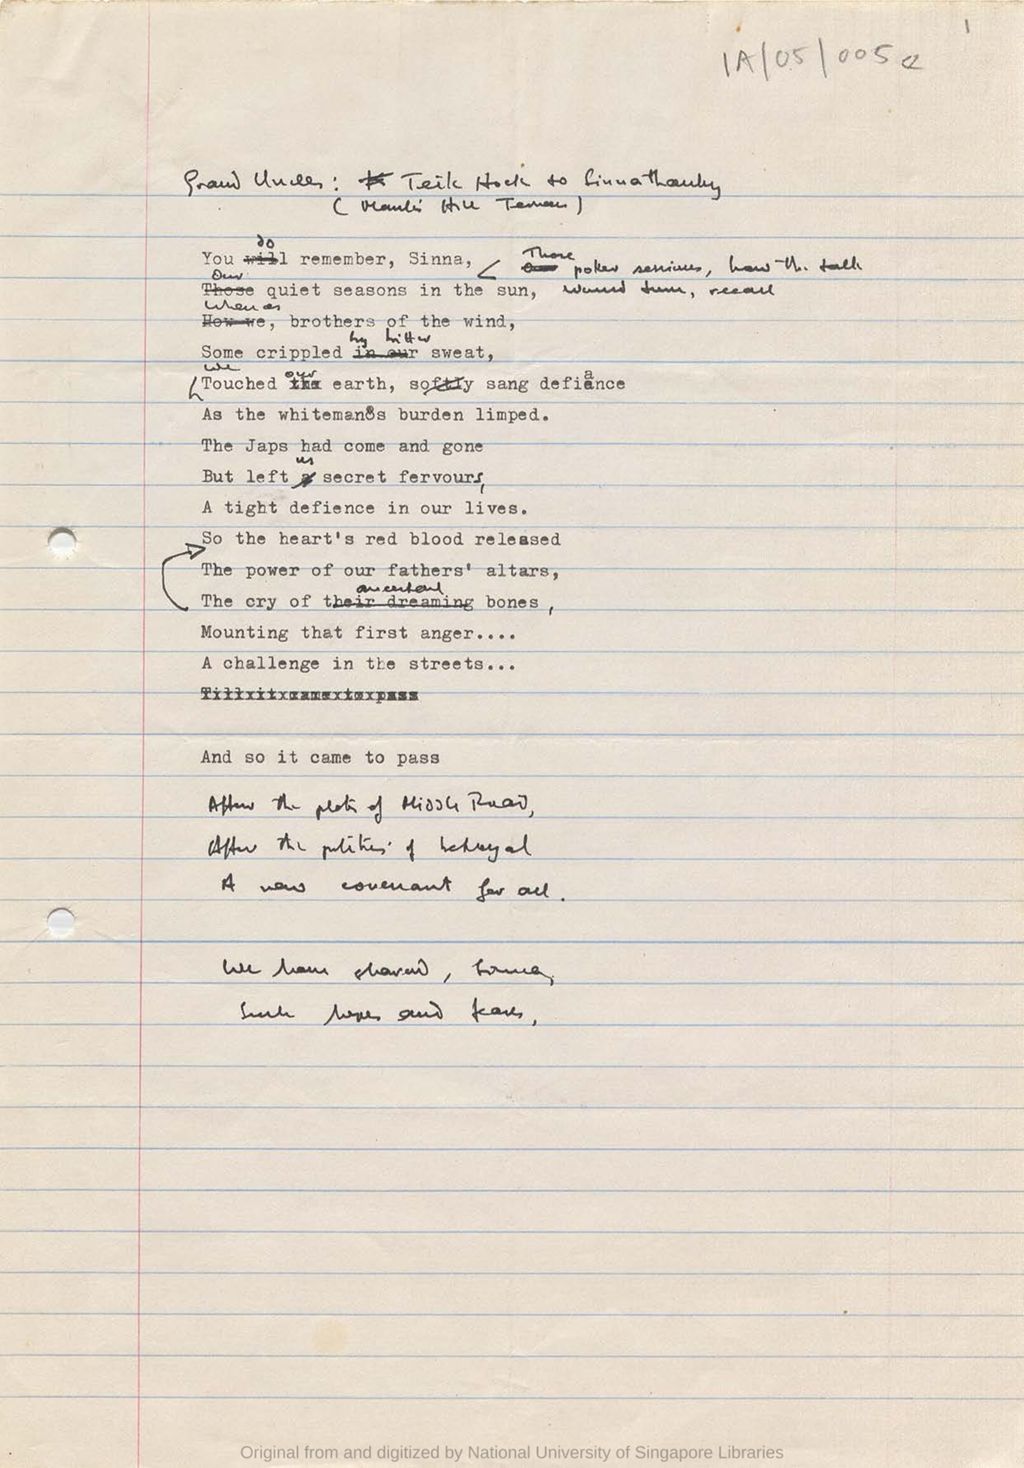 1
1A/05/005a
Grand Uncles: Teik Hock to Sinnathamby
(Mount Hill Terrace)
do
You will remember, Sinna, Those poker sessions, how the talk
Our
Those quiet seasons in the sun, would turn, recall
when as
How we, brothers of the wind,
by bitter
Some crippled in our sweat,
we our a
Touched the earth, softly sang defiance
As the whiteman's burden limped.
The Japs had come and gone
us
But left a secret fervours,
A tight defience in our lives.
So the heart's red blood released
The power of our fathers' altars,
ancestral
The cry of their dreaming bones,
Mounting that first anger....
A challenge in the streets...
Till it came to pass
And so it came to pass
After the plots of Middle Road,
After the politics of betrayal
A new covenant for all.
We have shared, Sinna,
Such hopes and fears,
Original from and digitized by National University of Singapore Libraries